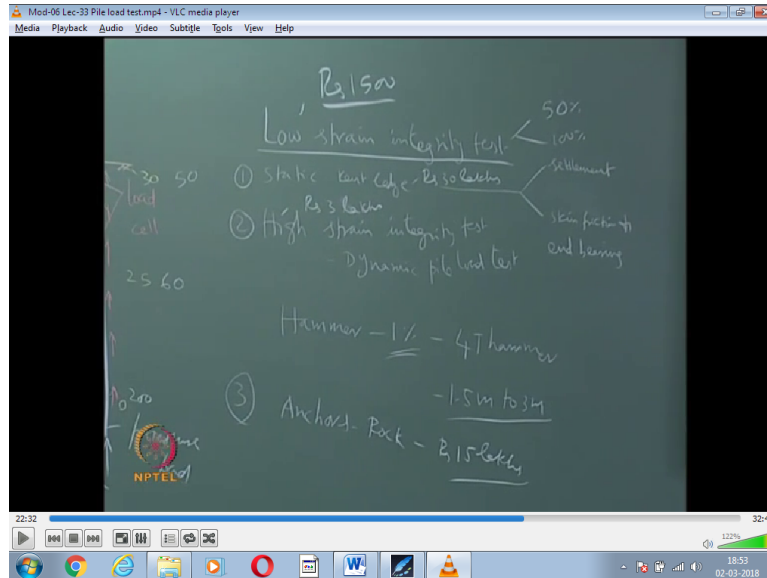 Mod-06 Lec-33 Pile load test.mp4 - VLC media player
Media Playback Audio Video Subtitle Tools View Help
Rs 1500
Low strain integrity test
50%
100%
① Static Kentledge - Rs 30 lakhs
settlement
skin friction &
end bearing
Rs 3 lakhs
② High strain integrity test
- Dynamic pile load test
Hammer - 1% - 4T hammer
- 1.5m to 3m
③ Anchors - Rock - Rs 15 lakhs
30 50
load
cell
25 60
200
NPTEL
22:32
122%
18:53
02-03-2018